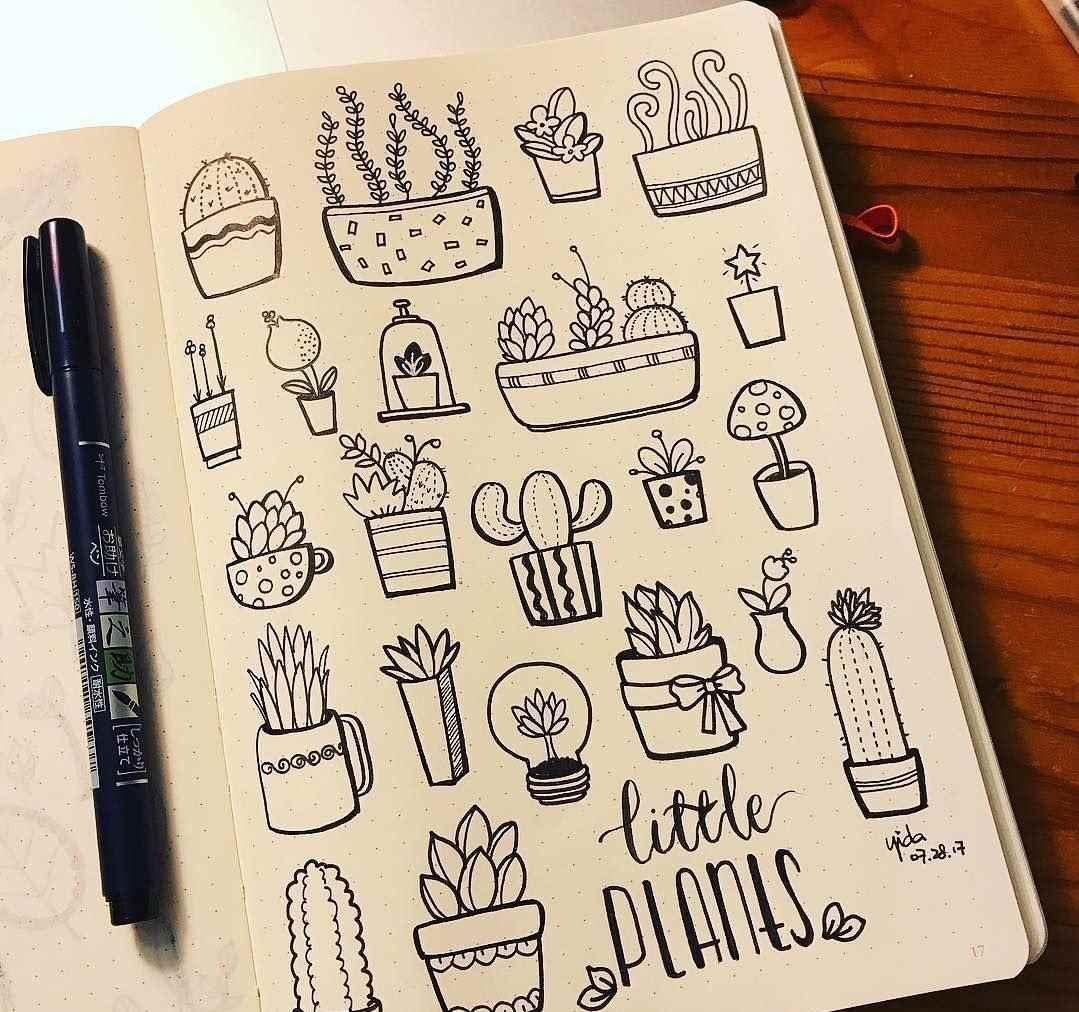 Tombow
お助け
ペン
筆之助
水性・顔料インク[耐水性]
しっかり
仕立て
little
PLANTS
yida
07.28.17
17